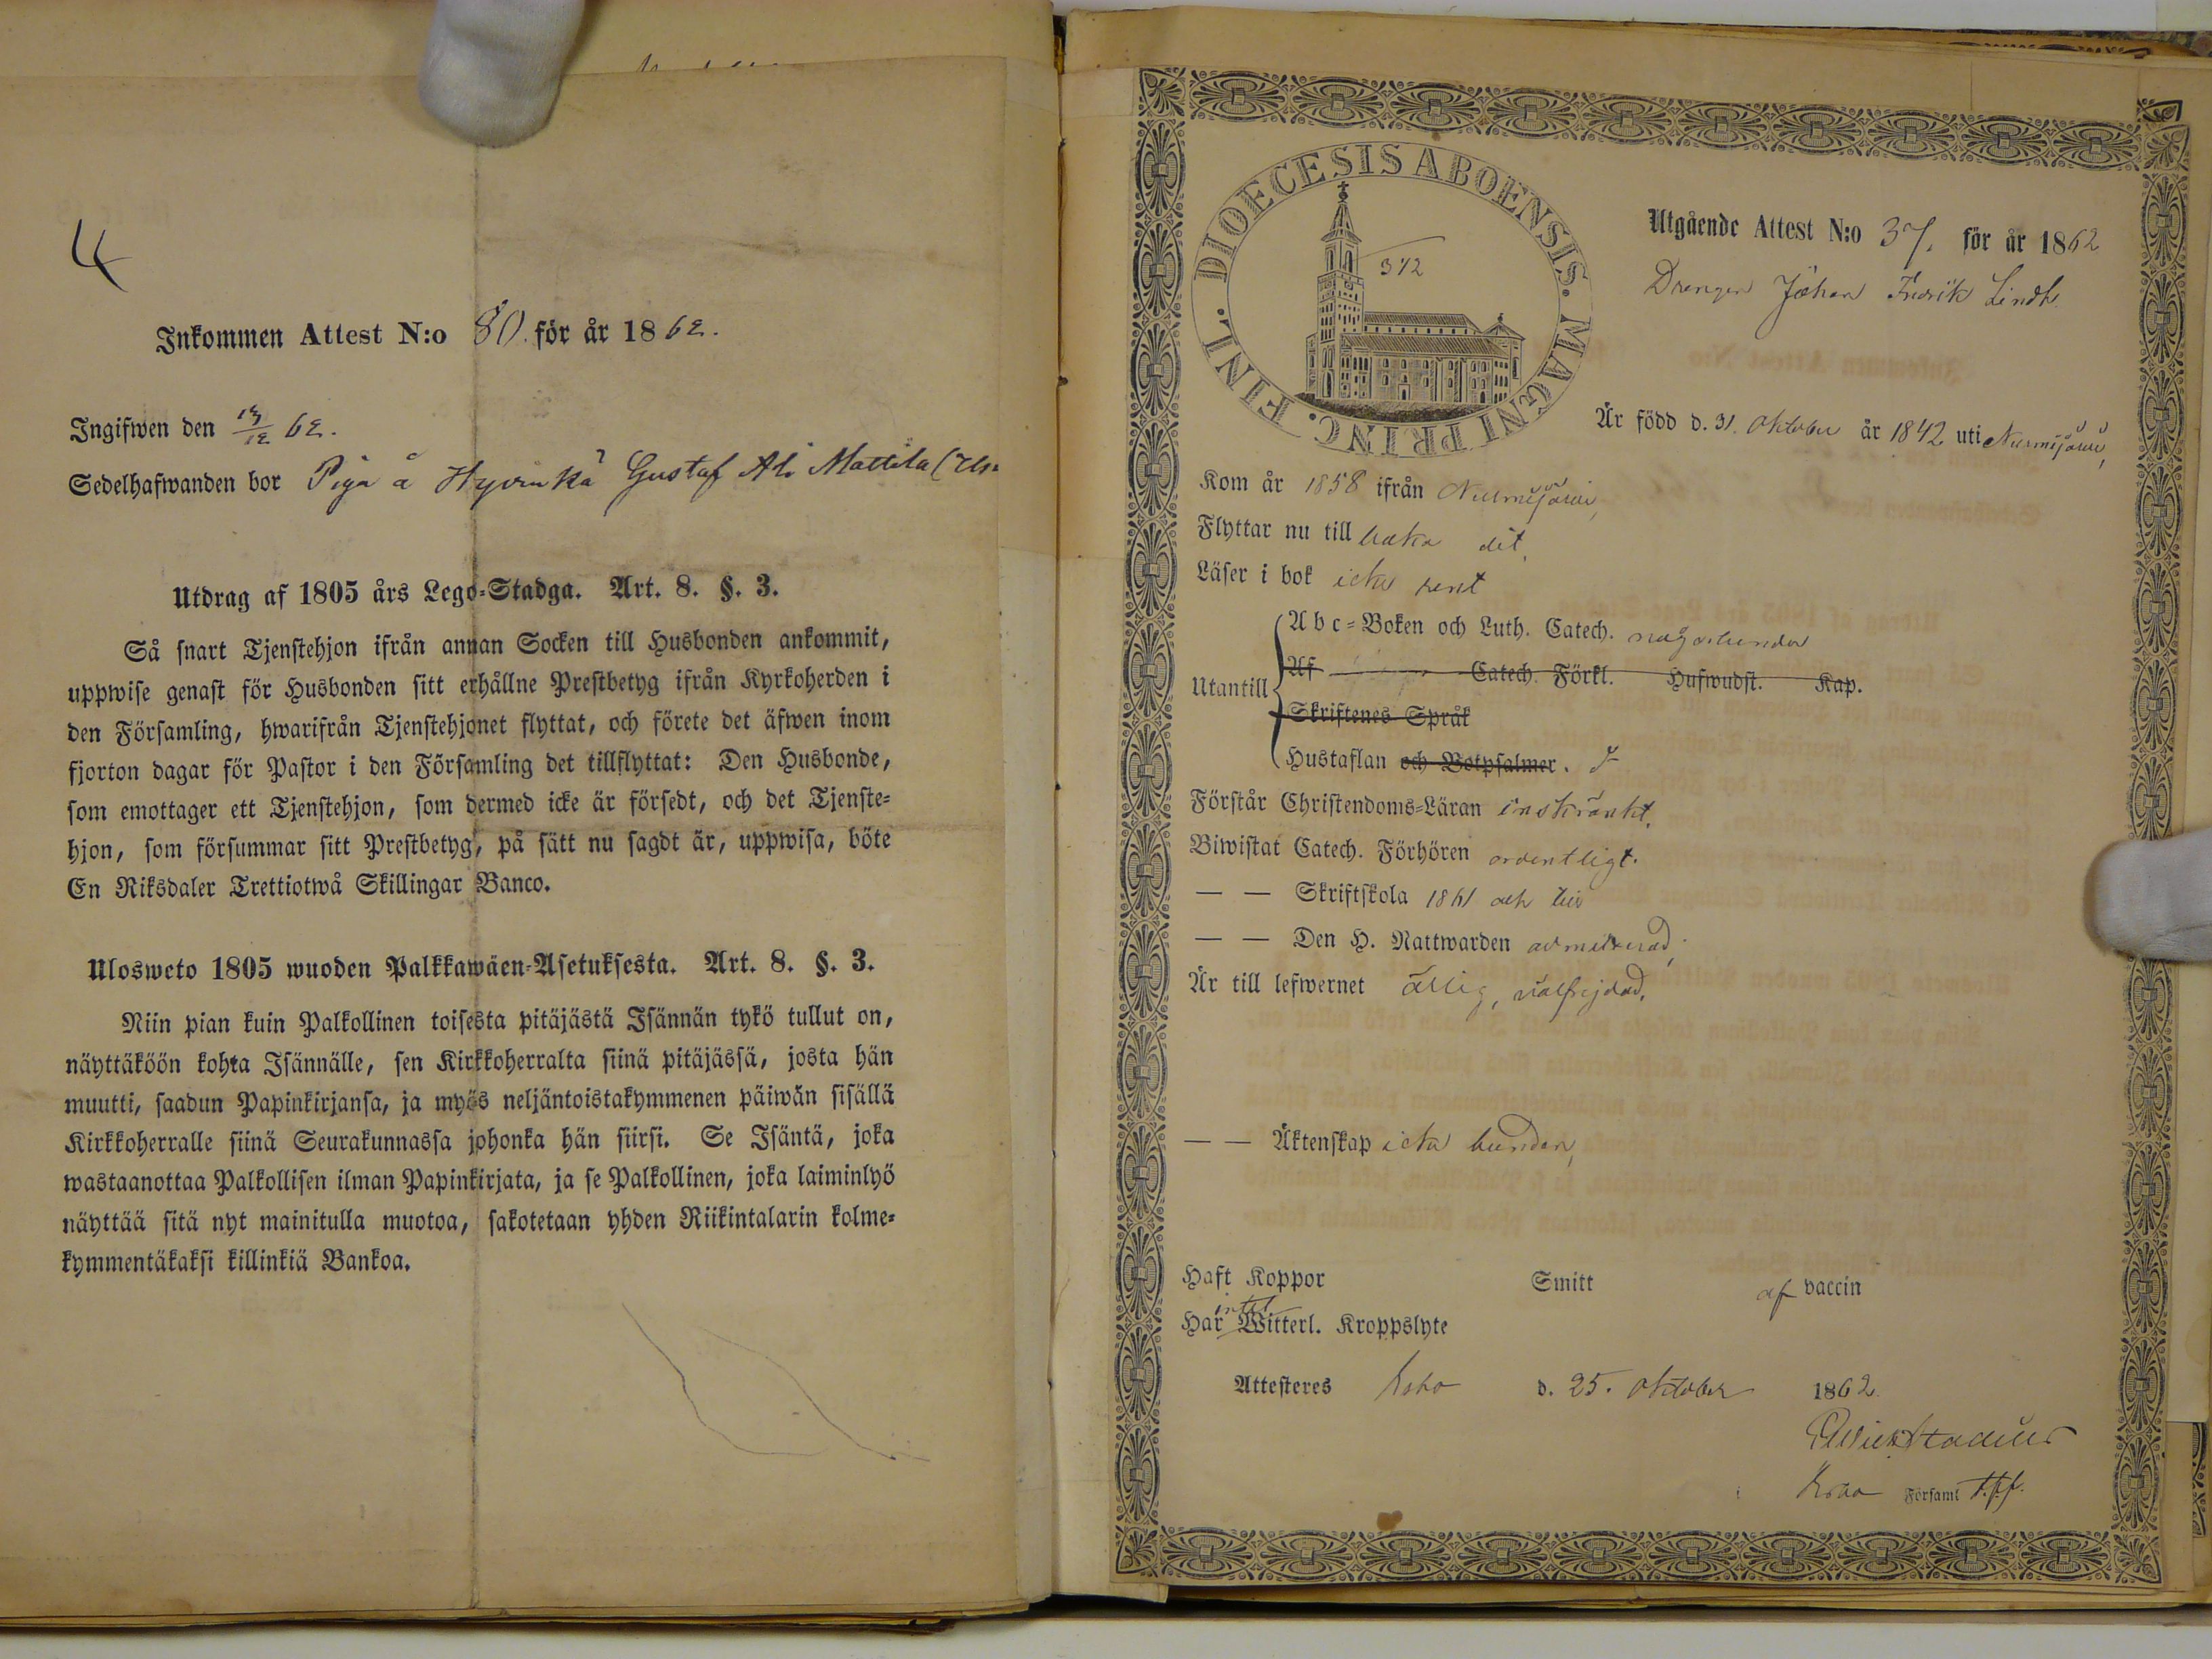 4
Inkommen Attest N:o 80. för år 1862.
Ingifwen den 62.
Sedelhafwanden bor Piga å Hyvinkä Gustaf Ali Mattila
Utdrag af 1805 års Lego-Stadga. Art. 8. §. 3.
Så snart Tjenstehjon ifrån annan Socken till Husbonden ankommit,
uppwise genast för Husbonden sitt erhållne Prestbetyg ifrån Kyrkoherden i
den Församling, hwarifrån Tjenstehjonet flyttat, och förete det äfwen inom
fjorton dagar för Pastor i den Församling det tillflyttat: Den Husbonde,
som emottager ett Tjenstehjon, som dermed icke är försedt, och det Tjenste-
hjon, som försummar sitt Prestbetyg, på sätt nu sagdt är, uppwisa, böte
En Riksdaler Trettiotwå Skillingar Banco.
Ulosweto 1805 wuoden Palkkawäen-Asetuksesta. Art. 8. §. 3.
Niin pian kuin Palkollinen toisesta pitäjästä Isännän tykö tullut on,
näyttäköön kohta Isännälle, sen Kirkkoherralta siinä pitäjässä, josta hän
muutti, saadun Papinkirjansa, ja myös neljäntoistakymmenen päiwän sisällä
Kirkkoherralle siinä Seurakunnassa johonka hän siirsi. Se Isäntä, joka
wastaanottaa Palkollisen ilman Papinkirjata, ja se Palkollinen, joka laiminlyö
näyttää sitä nyt mainitulla muotoa, sakotetaan yhden Riikintalarin kolme-
kymmentäkaksi killinkiä Bankoa.
DIOECESIS ABOENSIS. MAGNI PRINC. FINL.
312
Utgående Attest N:o 37. för år 1862
Drengen Johan Fredrik Lindh
Är född d. 31. Oktober år 1842 uti Nurmijärvi,
Kom år 1858 ifrån Nurmijärvi,
Flyttar nu till baka dit,
Läser i bok icke rent
Utantill
Abc-Boken och Luth. Catech. någorlunda
Af Catech. Förkl. Hufwudst. Kap.
Skriftenes Språk
Hustaflan och Botpsalmer.
Förstår Christendoms-Läran inskränkt.
Biwistat Catech. Förhören ordentligt.
— — Skriftskola 1861 och blir
— — Den H. Nattwarden admitterad,
Är till lefwernet ärlig, välfrejdad.
— — Äktenskap icke bunden,
Haft Koppor Smitt af vaccin
Har intet Witterl. Kroppslyte
Attesteres Esbo d. 25. Oktober 1862.
Esbo Församl